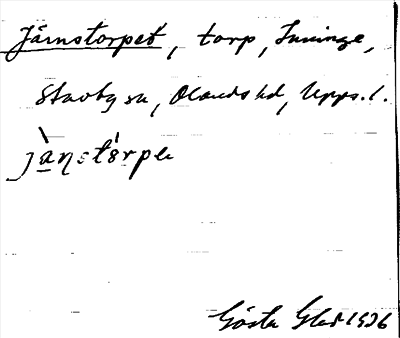 Järnstorpet, torp, Inninge,
Stavby sn, Olands hd, Upps. l.
Gösta 1936